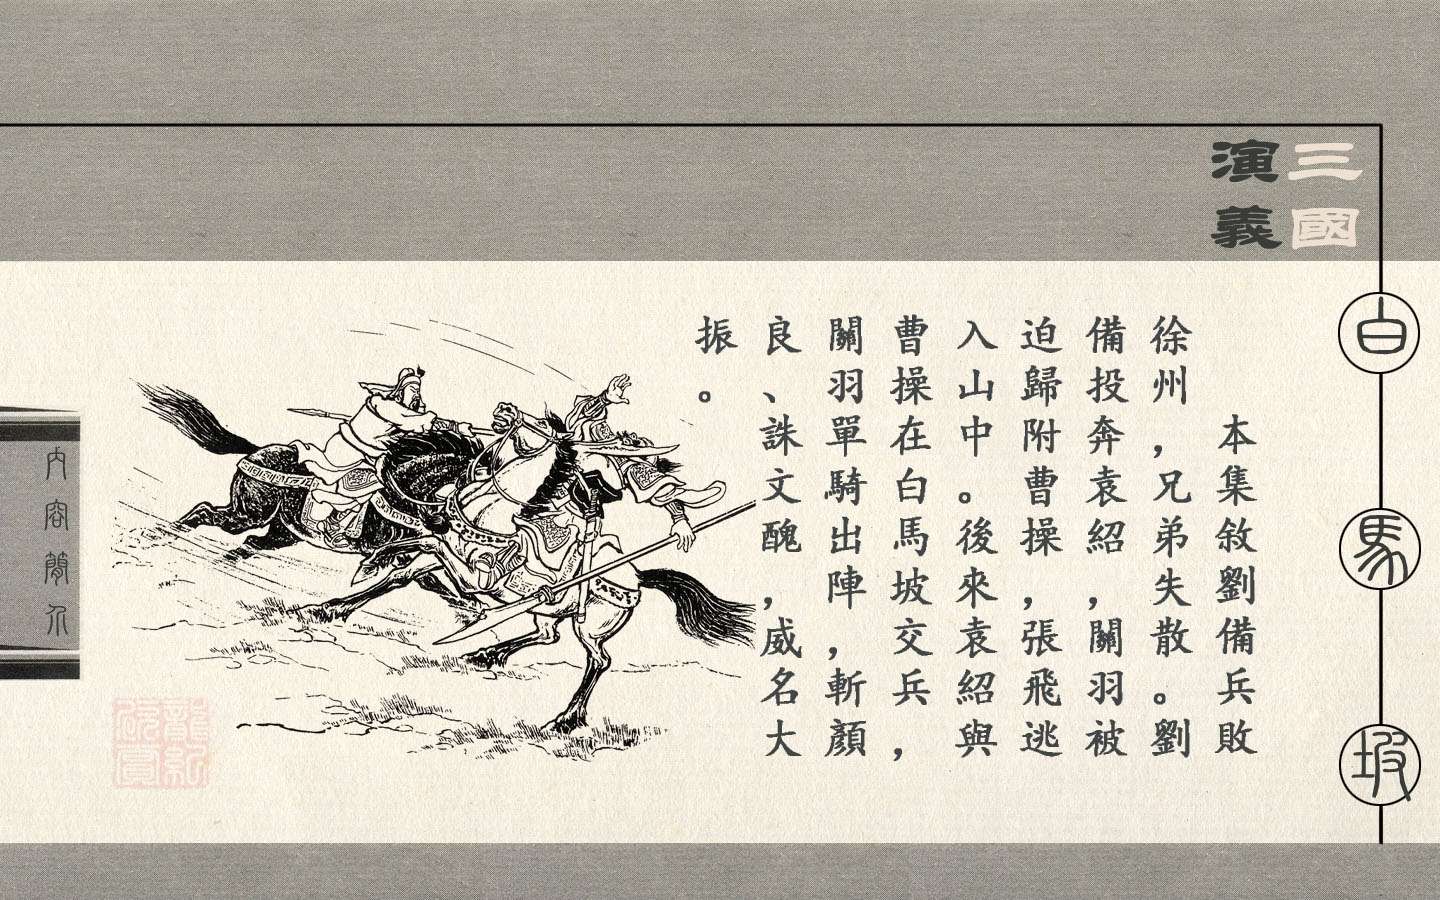 三國
演義
白馬坡
本集敘劉備兵敗
徐州，兄弟失散。劉
備投奔袁紹，關羽被
迫歸附曹操，張飛逃
入山中。後來袁紹與
曹操在白馬坡交兵，
關羽單騎出陣，斬顏
良、誅文醜，威名大
振。
內容簡介